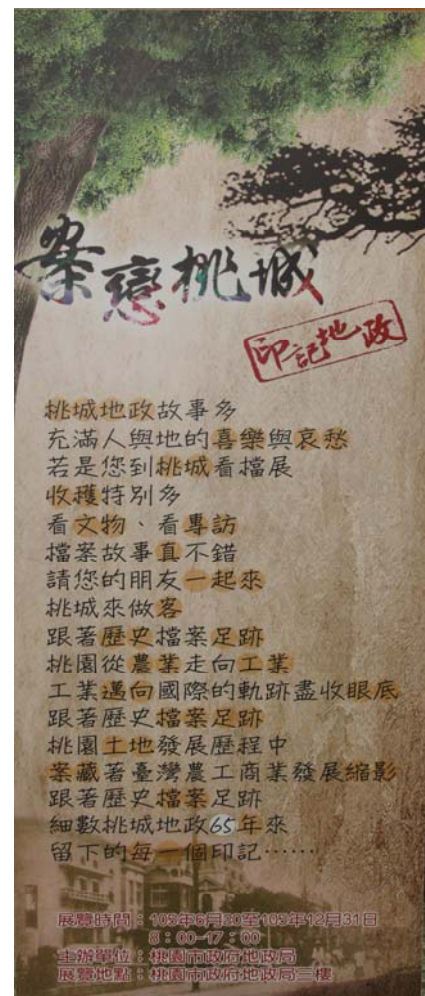 案戀桃城
印記地政
桃城地政故事多
充滿人與地的喜樂與哀愁
若是您到桃城看檔展
收穫特別多
看文物、看專訪
檔案故事真不錯
請您的朋友一起來
桃城來做客
跟著歷史檔案足跡
桃園從農業走向工業
工業邁向國際的軌跡盡收眼底
跟著歷史檔案足跡
桃園土地發展歷程中
案藏著臺灣農工商業發展縮影
跟著歷史檔案足跡
細數桃城地政65年來
留下的每一個印記……
展覽時間：105年6月30至105年12月31日
8：00-17：00
主辦單位：桃園市政府地政局
展覽地點：桃園市政府地政局三樓